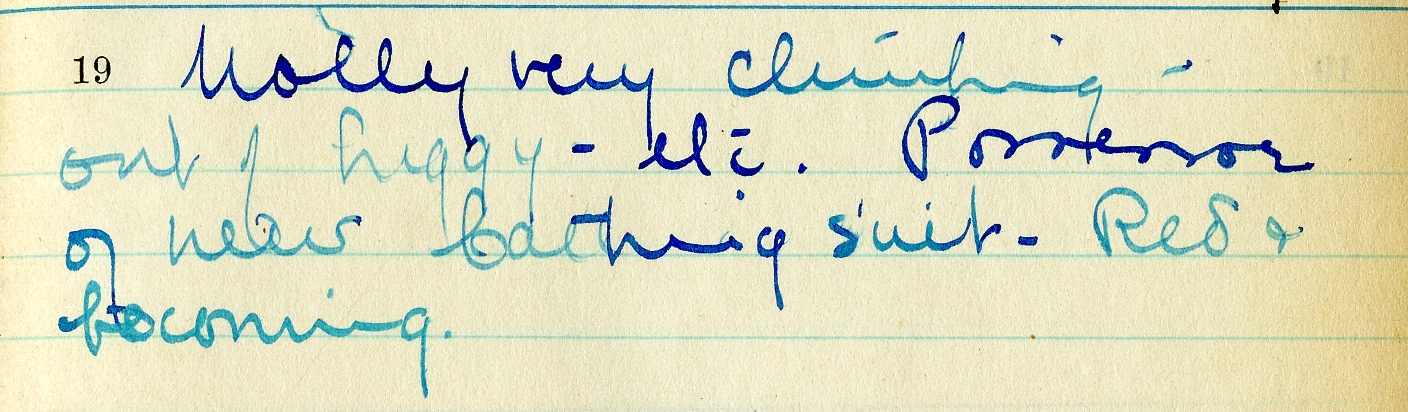 19 Molly very climbing -
out of buggy - etc. Possessor
of new bathing suit - Red &
becoming.